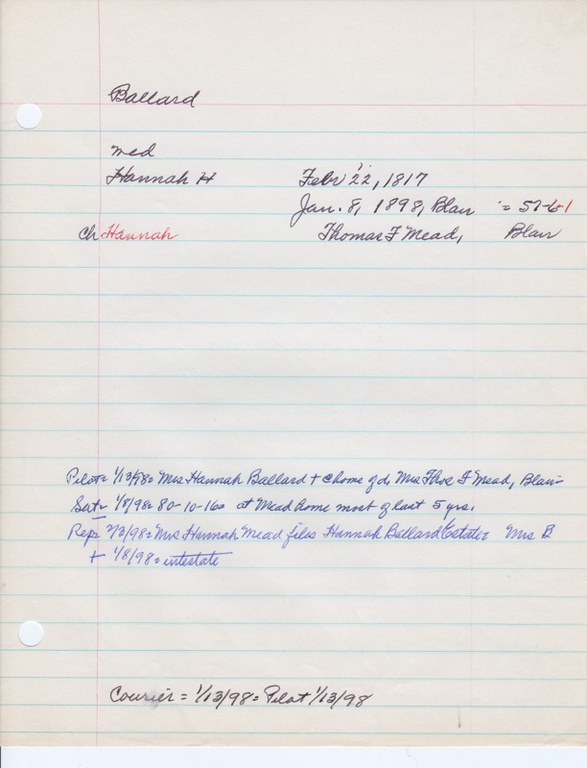 Ballard
med
Hannah H Febr 22, 1817
Jan. 8, 1898, Blair = 57-6-1
ch Hannah Thomas F Mead, Blair
Pilot = 1/13/98 = Mrs Hannah Ballard + @ home of d, Mrs Thos F Mead, Blair
Sat = 1/8/98 = 80-10-16 = at Mead home most of last 5 yrs.
Rep = 2/3/98 = Mrs Hannah Mead files Hannah Ballard Estate = Mrs B
+ 1/8/98 = intestate
Courier = 1/13/98 = Pilot 1/13/98